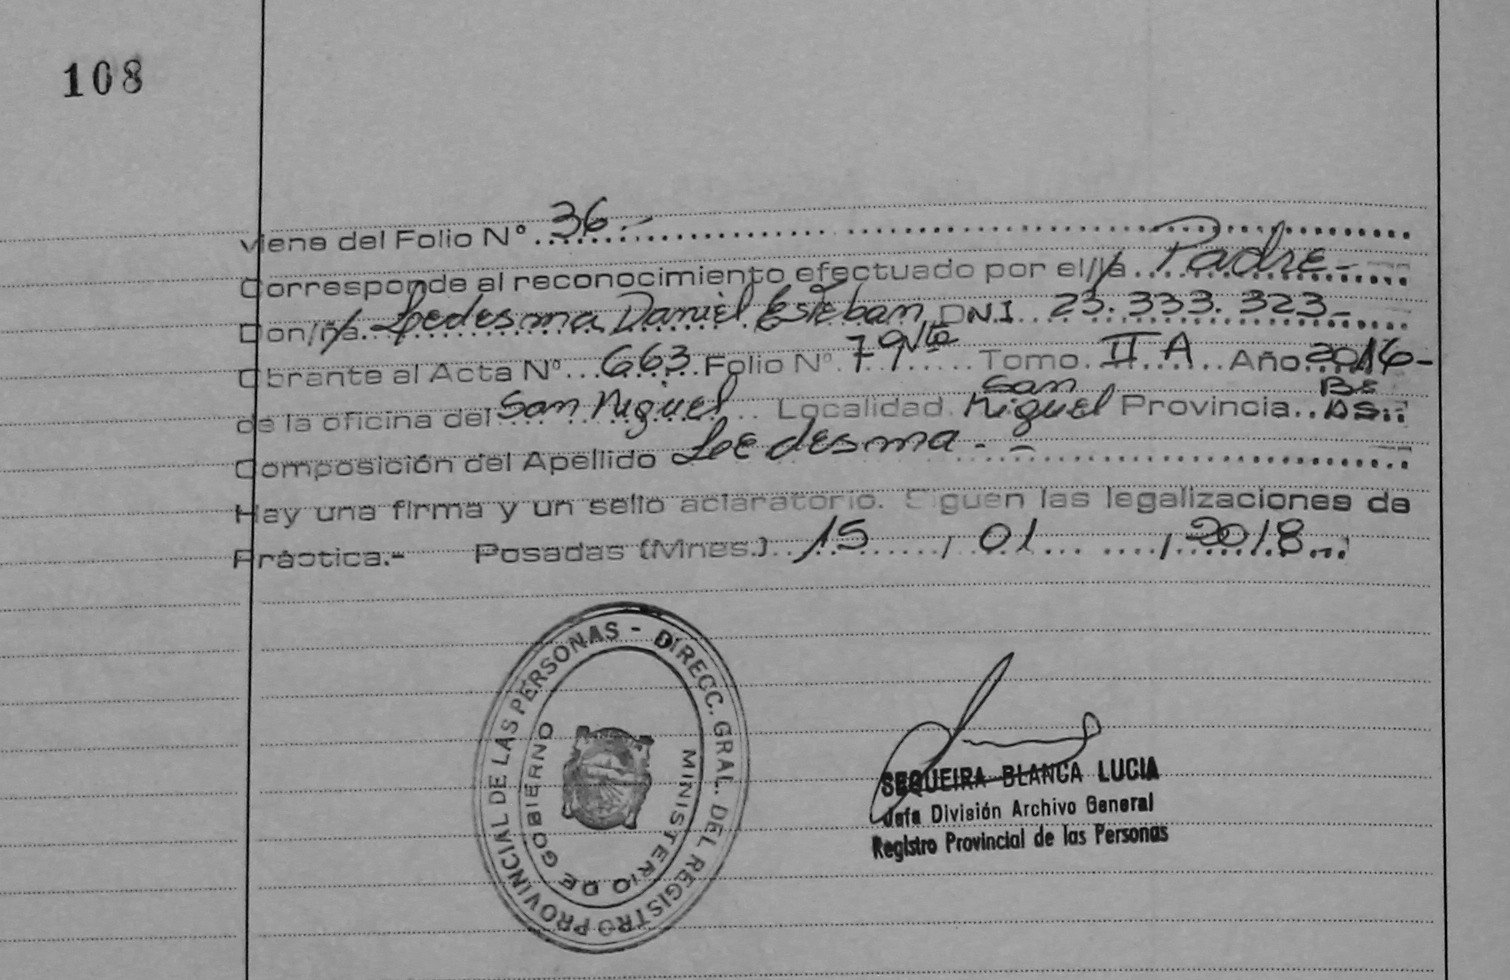 108
viene del Folio Nº 36.-
Corresponde al reconocimiento efectuado por el/la Padre-
Don/ña Ledesma Daniel Esteban DNI 23.333.323-
Obrante al Acta Nº 663 Folio Nº 79 vto Tomo II A Año 2016-
de la oficina del San Miguel Localidad San Miguel Provincia Bs As
Composición del Apellido Ledesma.-
Hay una firma y un sello aclaratorio. Siguen las legalizaciones de
Práctica.- Posadas (Mnes.) 15 / 01 / 2018
DIRECC. GRAL. DEL REGISTRO PROVINCIAL DE LAS PERSONAS -
MINISTERIO DE GOBIERNO
SEQUEIRA BLANCA LUCIA
Jefa División Archivo General
Registro Provincial de las Personas